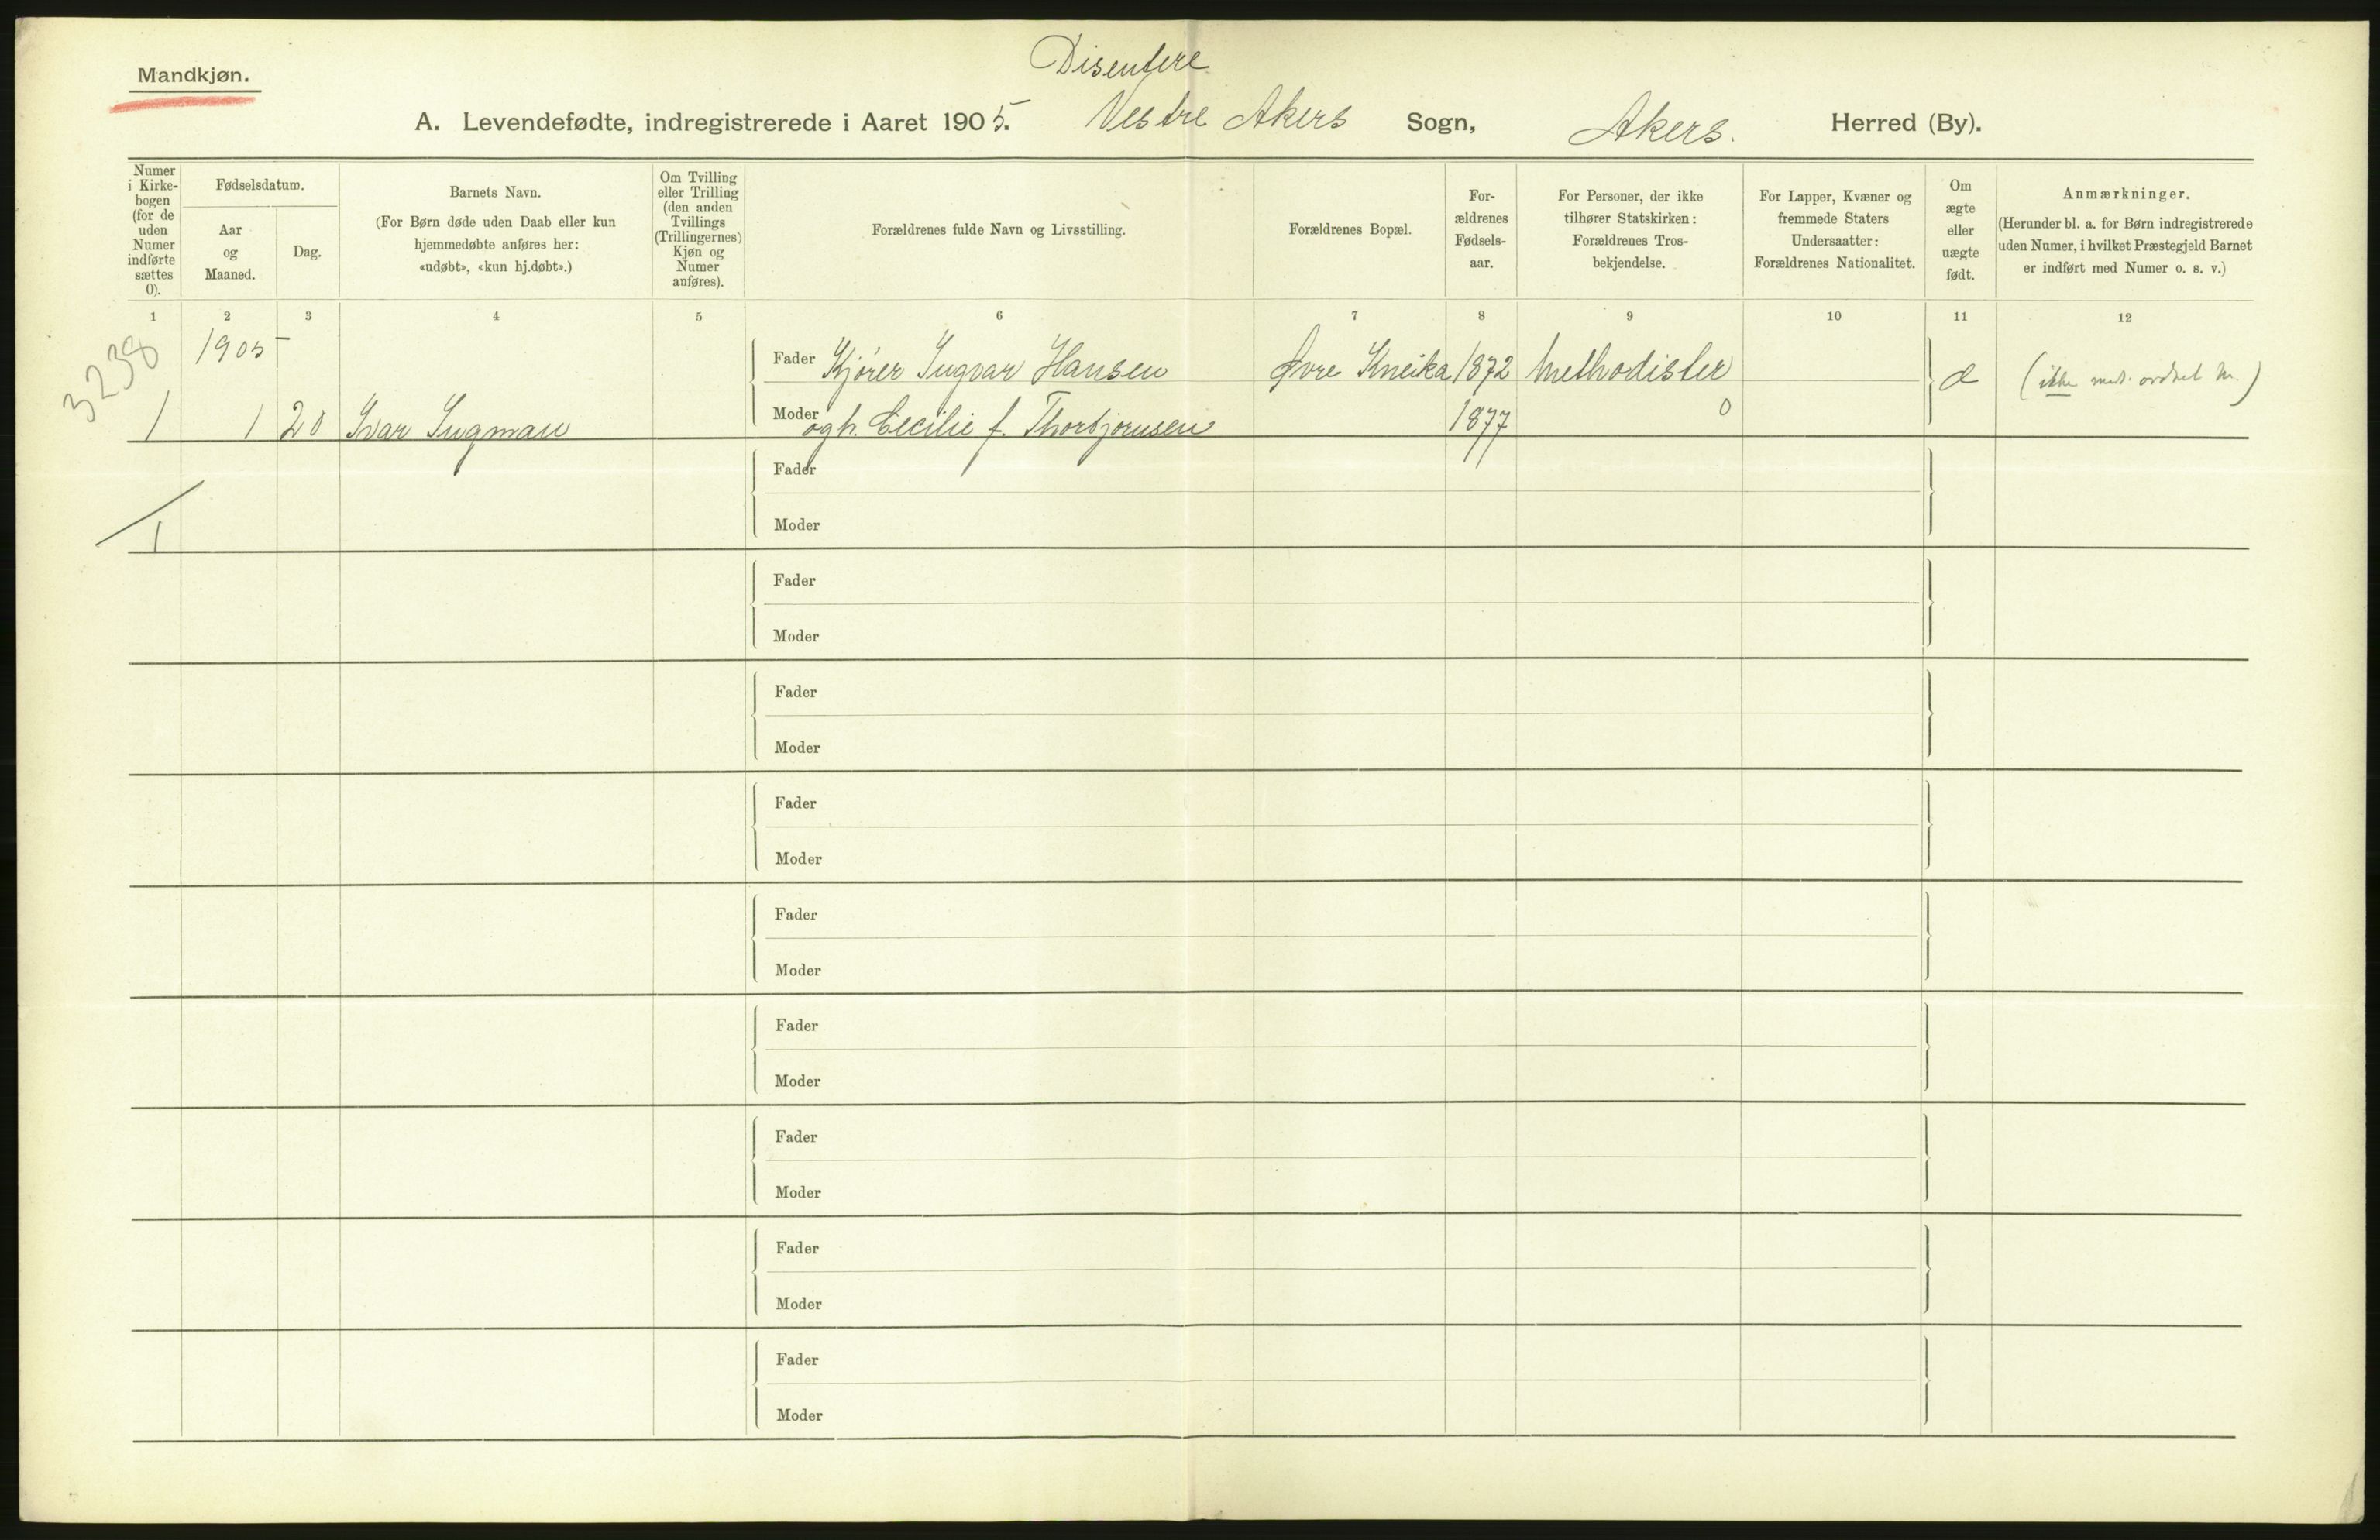 Disentere
Mandkjøn.
A. Levendefødte, indregistrerede i Aaret 1905. Vestre Akers Sogn, Akers. Herred (By).
Numer i Kirke-bogen (for de uden Numer indførte sættes 0).
Fødselsdatum.
Aar og Maaned.
Dag.
Barnets Navn.
(For Børn døde uden Daab eller kun
hjemmedøbte anføres her:
«udøbt», «kun hj.døbt».)
Om Tvilling
eller Trilling
(den anden
Tvillings
(Trillingernes)
Kjøn og
Numer
anføres).
Forældrenes fulde Navn og Livsstilling.
Forældrenes Bopæl.
For-
ældrenes
Fødsels-
aar.
For Personer, der ikke
tilhører Statskirken:
Forældrenes Tros-
bekjendelse.
For Lapper, Kvæner og
fremmede Staters
Undersaatter:
Forældrenes Nationalitet.
Om
ægte
eller
uægte
født.
Anmærkninger.
(Herunder bl. a. for Børn indregistrerede
uden Numer, i hvilket Præstegjeld Barnet
er indført med Numer o. s. v.)
1 2 3 4 5 6 7 8 9 10 11 12
3238
1905
Fader Kjører Ingvar Hansen Øvre Kneika 1872 Methodister æ (ikke
1 1 20 Ivar Ingman Moder ogh. Cecilie f. Thorbjørnsen 1877 0
Fader
1
Moder
Fader
Moder
Fader
Moder
Fader
Moder
Fader
Moder
Fader
Moder
Fader
Moder
Fader
Moder
Fader
Moder